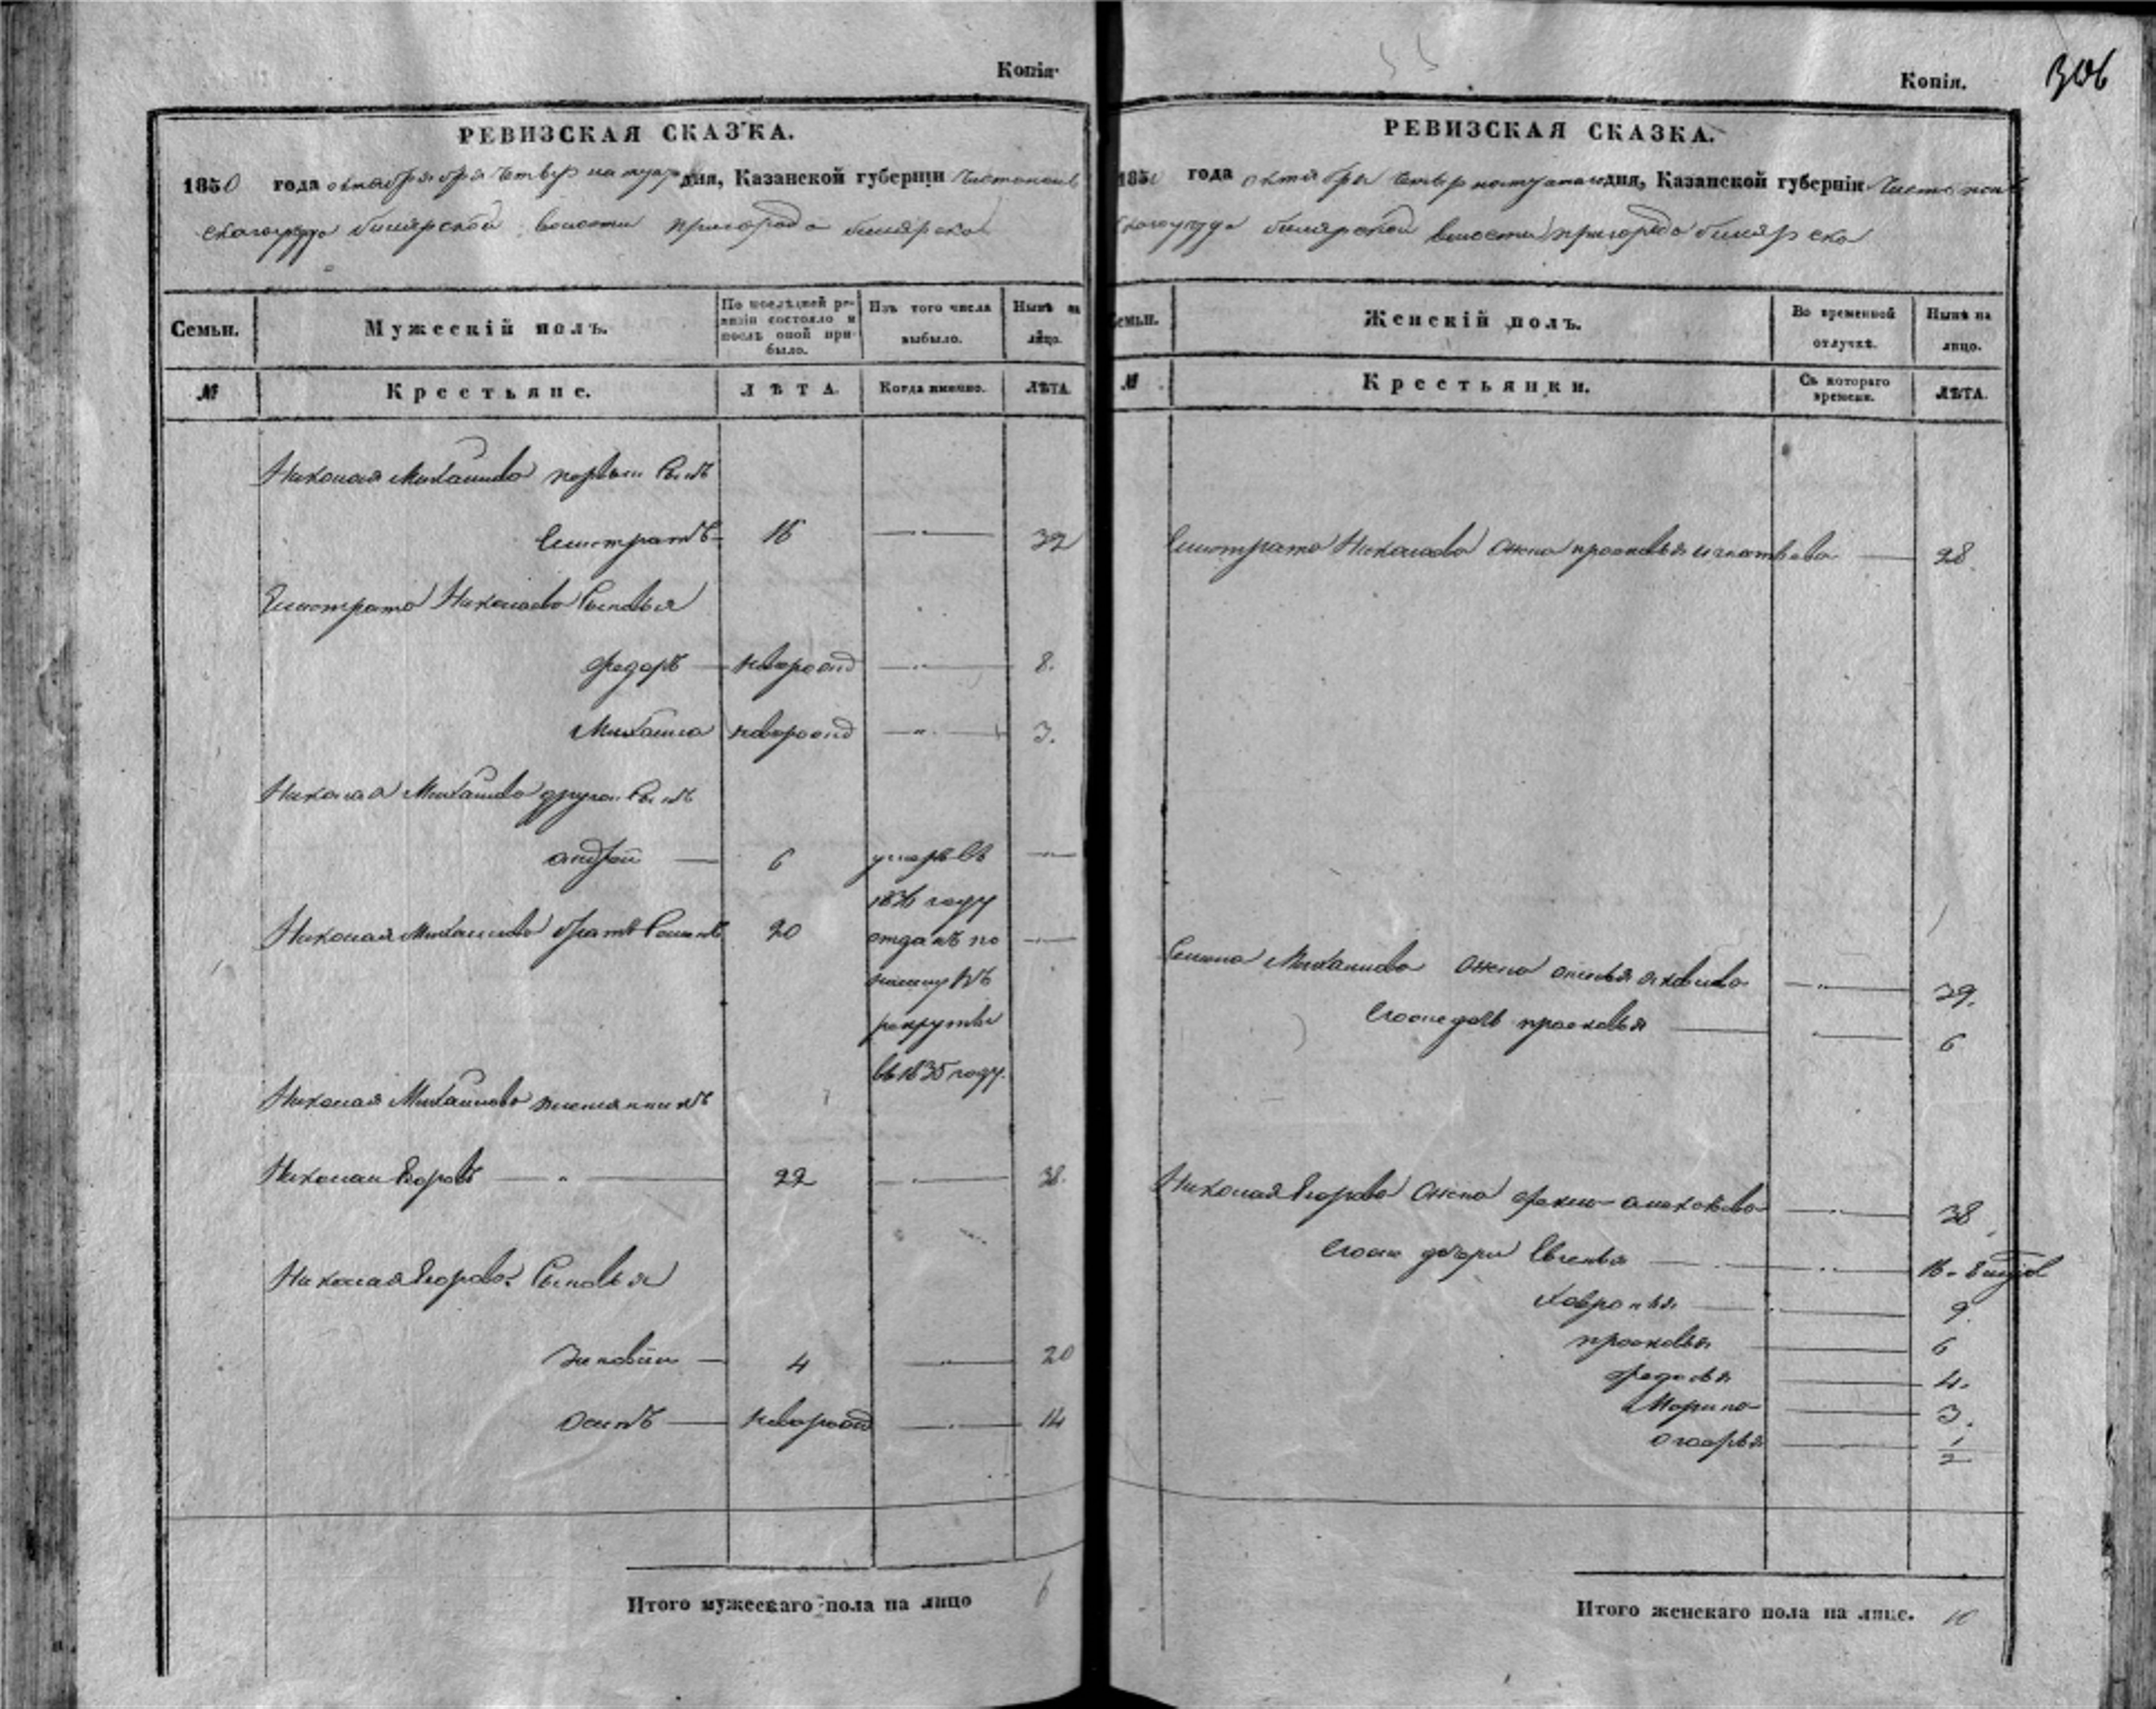 Копія.
РЕВИЗСКАЯ СКАЗКА.
1850 года октября четвер на дня, Казанской губерніи Чистополь
скаго уезда билярской волости пригорода билярска
Семьи.
Мужескій полъ.
По послѣдней ревизіи состояло и послѣ оной прибыло.
Изъ того числа выбыло.
Нынѣ на лицо.
№
Крестьяне.
ЛѢТА.
Когда именно.
ЛѢТА.
Николая Михайлова первый Сынъ
Елистратъ 16 —"— 32
Елистрата Николаева Сыновья
федоръ — новорожд —"— 8.
Михаила новорожд —"— 3.
Николая Михайлова другой Сынъ
андрей — 6 умеръ въ —"—
1836 году
Николая Михайлова братъ Семенъ 20 отданъ по —"—
найму въ
рекруты
въ 1835 году.
Николая Михайлова племянникъ
Николай Егоровъ —"— 22 —"— 38.
Николая Егорова Сыновья
Зиновій — 4 —"— 20
Осипъ — новорожд —"— 14
Итого мужескаго пола на лицо 6
Копія.
306
РЕВИЗСКАЯ СКАЗКА.
1850 года октября четвер дня, Казанской губерніи Чистополь
скаго уезда билярской волости пригорода билярска
Семьи.
Женскій полъ.
Во временной отлучкѣ.
Нынѣ на лицо.
№
Крестьянки.
Съ котораго времени.
ЛѢТА.
Елистрата Николаева жена прасковья игнатьева — 28.
Семена Михайлова жена яковлева —"— 39.
Его же дочь прасковья —"— 6
Николая Егорова жена —"— 38
Его же дочери Евгенья —"— 16
Хавронья —"— 9.
прасковья — 6
федосья — 4.
Марина — 3.
— 1/2
Итого женскаго пола на лице. 10